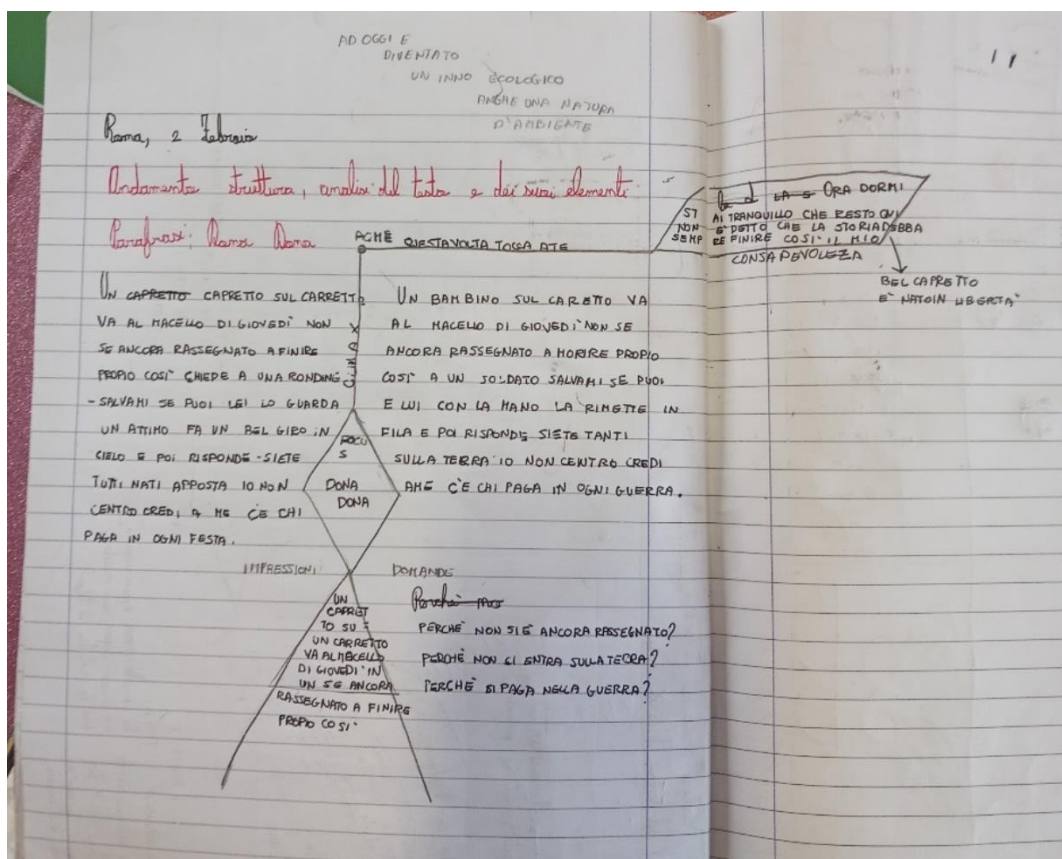 AD OGGI E
DIVENTATO
UN INNO ECOLOGICO
ANCHE UNA NATURA
D'AMBIENTE
11
Roma, 2 Febbraio
Andamento struttura, analisi del testo e dei suoi elementi
Parafrasi: Dona Dona
AGME QUESTAVOLTA TOCCA ATE
LA S ORA DORMI
ST AI TRANQUILLO CHE RESTO QUI
NON E' DETTO CHE LA STORIA DEBBA
SEMP RE FINIRE COSI' IL MIO
CONSAPEVOLEZZA
BEL CAPRETTO
E' NATOIN LIBERTA'
UN CAPRETTO CAPRETTO SUL CARRETTO
VA AL MACELLO DI GIOVEDI' NON
SE ANCORA RASSEGNATO A FINIRE
PROPIO COSI' CHIEDE A UNA RONDINE
- SALVAMI SE PUOI LEI LO GUARDA
UN ATTIMO FA UN BEL GIRO IN
CIELO E POI RISPONDE - SIETE
TUTTI NATI APPOSTA IO NON
CENTRO CREDI A ME C'E CHI
PAGA IN OGNI FESTA.
UN BAMBINO SUL CARETTO VA
AL MACELLO DI GIOVEDI' NON SE
ANCORA RASSEGNATO A MORIRE PROPIO
COSI' A UN SOLDATO SALVAMI SE PUOI
E LUI CON LA MANO LA RIMETTE IN
FILA E POI RISPONDE SIETE TANTI
SULLA TERRA IO NON CENTRO CREDI
AME C'E CHI PAGA IN OGNI GUERRA.
FOCU
S
DONA
DONA
IMPRESSIONI
DOMANDE
UN
CAPRET
TO SU
UN CARRETTO
VA AL MACELLO
DI GIOVEDI' IN
UN SE ANCORA
RASSEGNATO A FINIRE
PROPIO COSI'
Perchè
PERCHÈ NON SIE ANCORA RASSEGNATO?
PERCHÈ NON CI ENTRA SULLA TERRA?
PERCHÈ SI PAGA NELLA GUERRA?